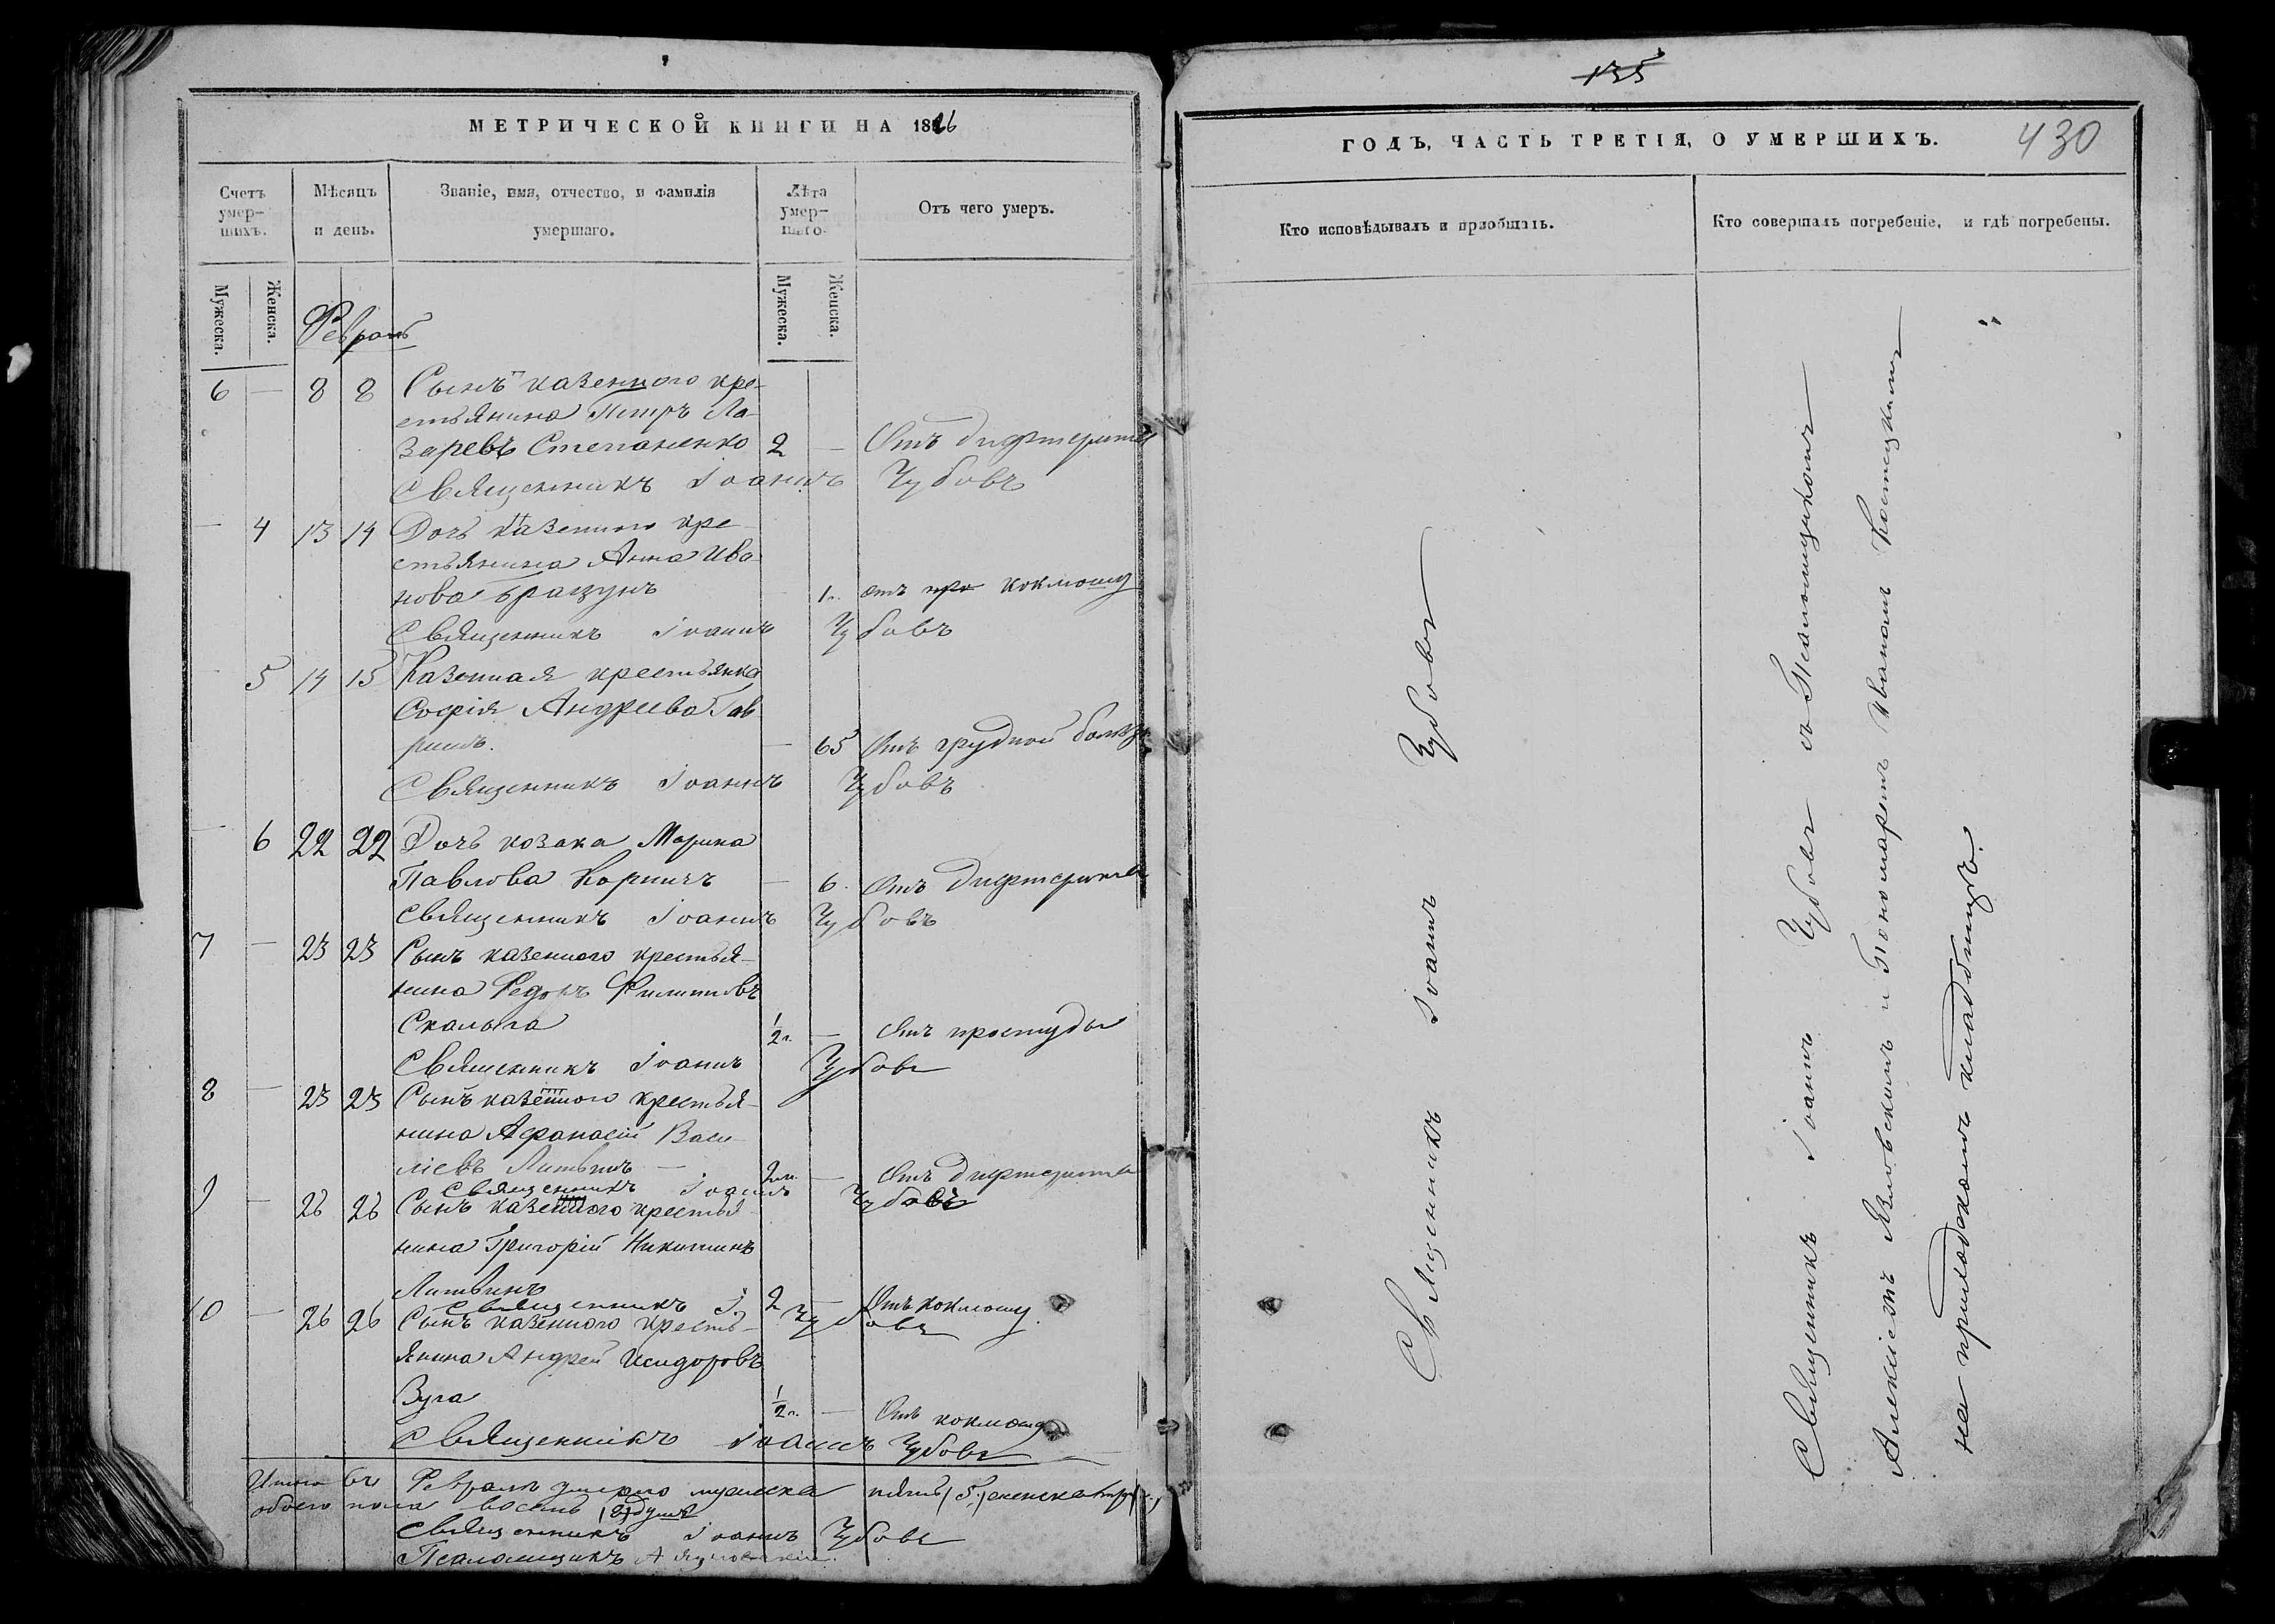 МЕТРИЧЕСКОЙ КНИГИ НА 18
Счетъ умер-шихъ.
Мѣсяцъ и день.
Званіе, имя, отчество, и фамилія умершаго.
Лѣта умер-шаго.
Отъ чего умеръ.
Мужеска. Женска.
Мужеска. Женска.
Февраль
6 — 8 8 Сынъ казеннаго кре-
стьянина Петръ Ла-
заревъ Степаненко 2 — Отъ дифтерита
Священникъ Іоаннъ Чубовъ
— 4 13 14 Дочь казеннаго кре-
стьянина Анна Ива-
нова 1 г. отъ коклюшу
Священникъ Іоаннъ Чубовъ
5 14 15 Казенная крестьянка
Софія Андреева Гав
риш. — 65 Отъ грудной болѣзн
Священникъ Іоаннъ Чубовъ
— 6 22 22 Дочь козака Марина
Павлова — 6. Отъ дифтерита
Священникъ Іоаннъ Чубовъ
7 — 23 23 Сынъ казеннаго крестья-
нина Федоръ Филиповъ
Скалыга 1/2 г. — Отъ простуды
Священникъ Іоаннъ Чубовъ
8 — 23 23 Сынъ казеннаго крестья-
нина Афанасій Васи-
ліевъ Литвинъ — — Отъ дифтерита
Священникъ Іоаннъ Чубовъ
9 — 26 26 Сынъ казеннаго крестья-
нина Григорій Никитинъ
Литвинъ 2 — Отъ коклюшу
Священникъ І. Чубовъ
10 — 26 26 Сынъ казеннаго кресть-
янина Андрей Исидоровъ
1/2 г. — Отъ коклюшу
Священникъ Іоаннъ Чубовъ
Итого въ Февралѣ умерло мужеска пять (5.) женска три
обоего пола восемь (8) душъ
Священникъ Іоаннъ Чубовъ
Псаломщикъ А
135
ГОДЪ, ЧАСТЬ ТРЕТІЯ, О УМЕРШИХЪ.
430
Кто исповѣдывалъ и пріобщалъ.
Кто совершалъ погребеніе, и гдѣ погребены.
Священникъ Іоаннъ Чубовъ
Священникъ Іоаннъ Чубовъ съ Псаломщикомъ
Алексіемъ и Пономаремъ Иваномъ Костецкимъ
на приходскомъ кладбищѣ.